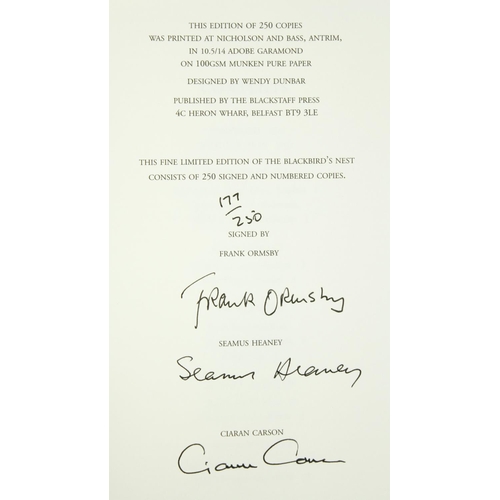 THIS EDITION OF 250 COPIES
WAS PRINTED AT NICHOLSON AND BASS, ANTRIM,
IN 10.5/14 ADOBE GARAMOND
ON 100GSM MUNKEN PURE PAPER
DESIGNED BY WENDY DUNBAR
PUBLISHED BY THE BLACKSTAFF PRESS
4C HERON WHARF, BELFAST BT9 3LE
THIS FINE LIMITED EDITION OF THE BLACKBIRD'S NEST
CONSISTS OF 250 SIGNED AND NUMBERED COPIES.
177/250
SIGNED BY
FRANK ORMSBY
Frank Ormsby
SEAMUS HEANEY
Seamus Heaney
CIARAN CARSON
Ciaran Carson